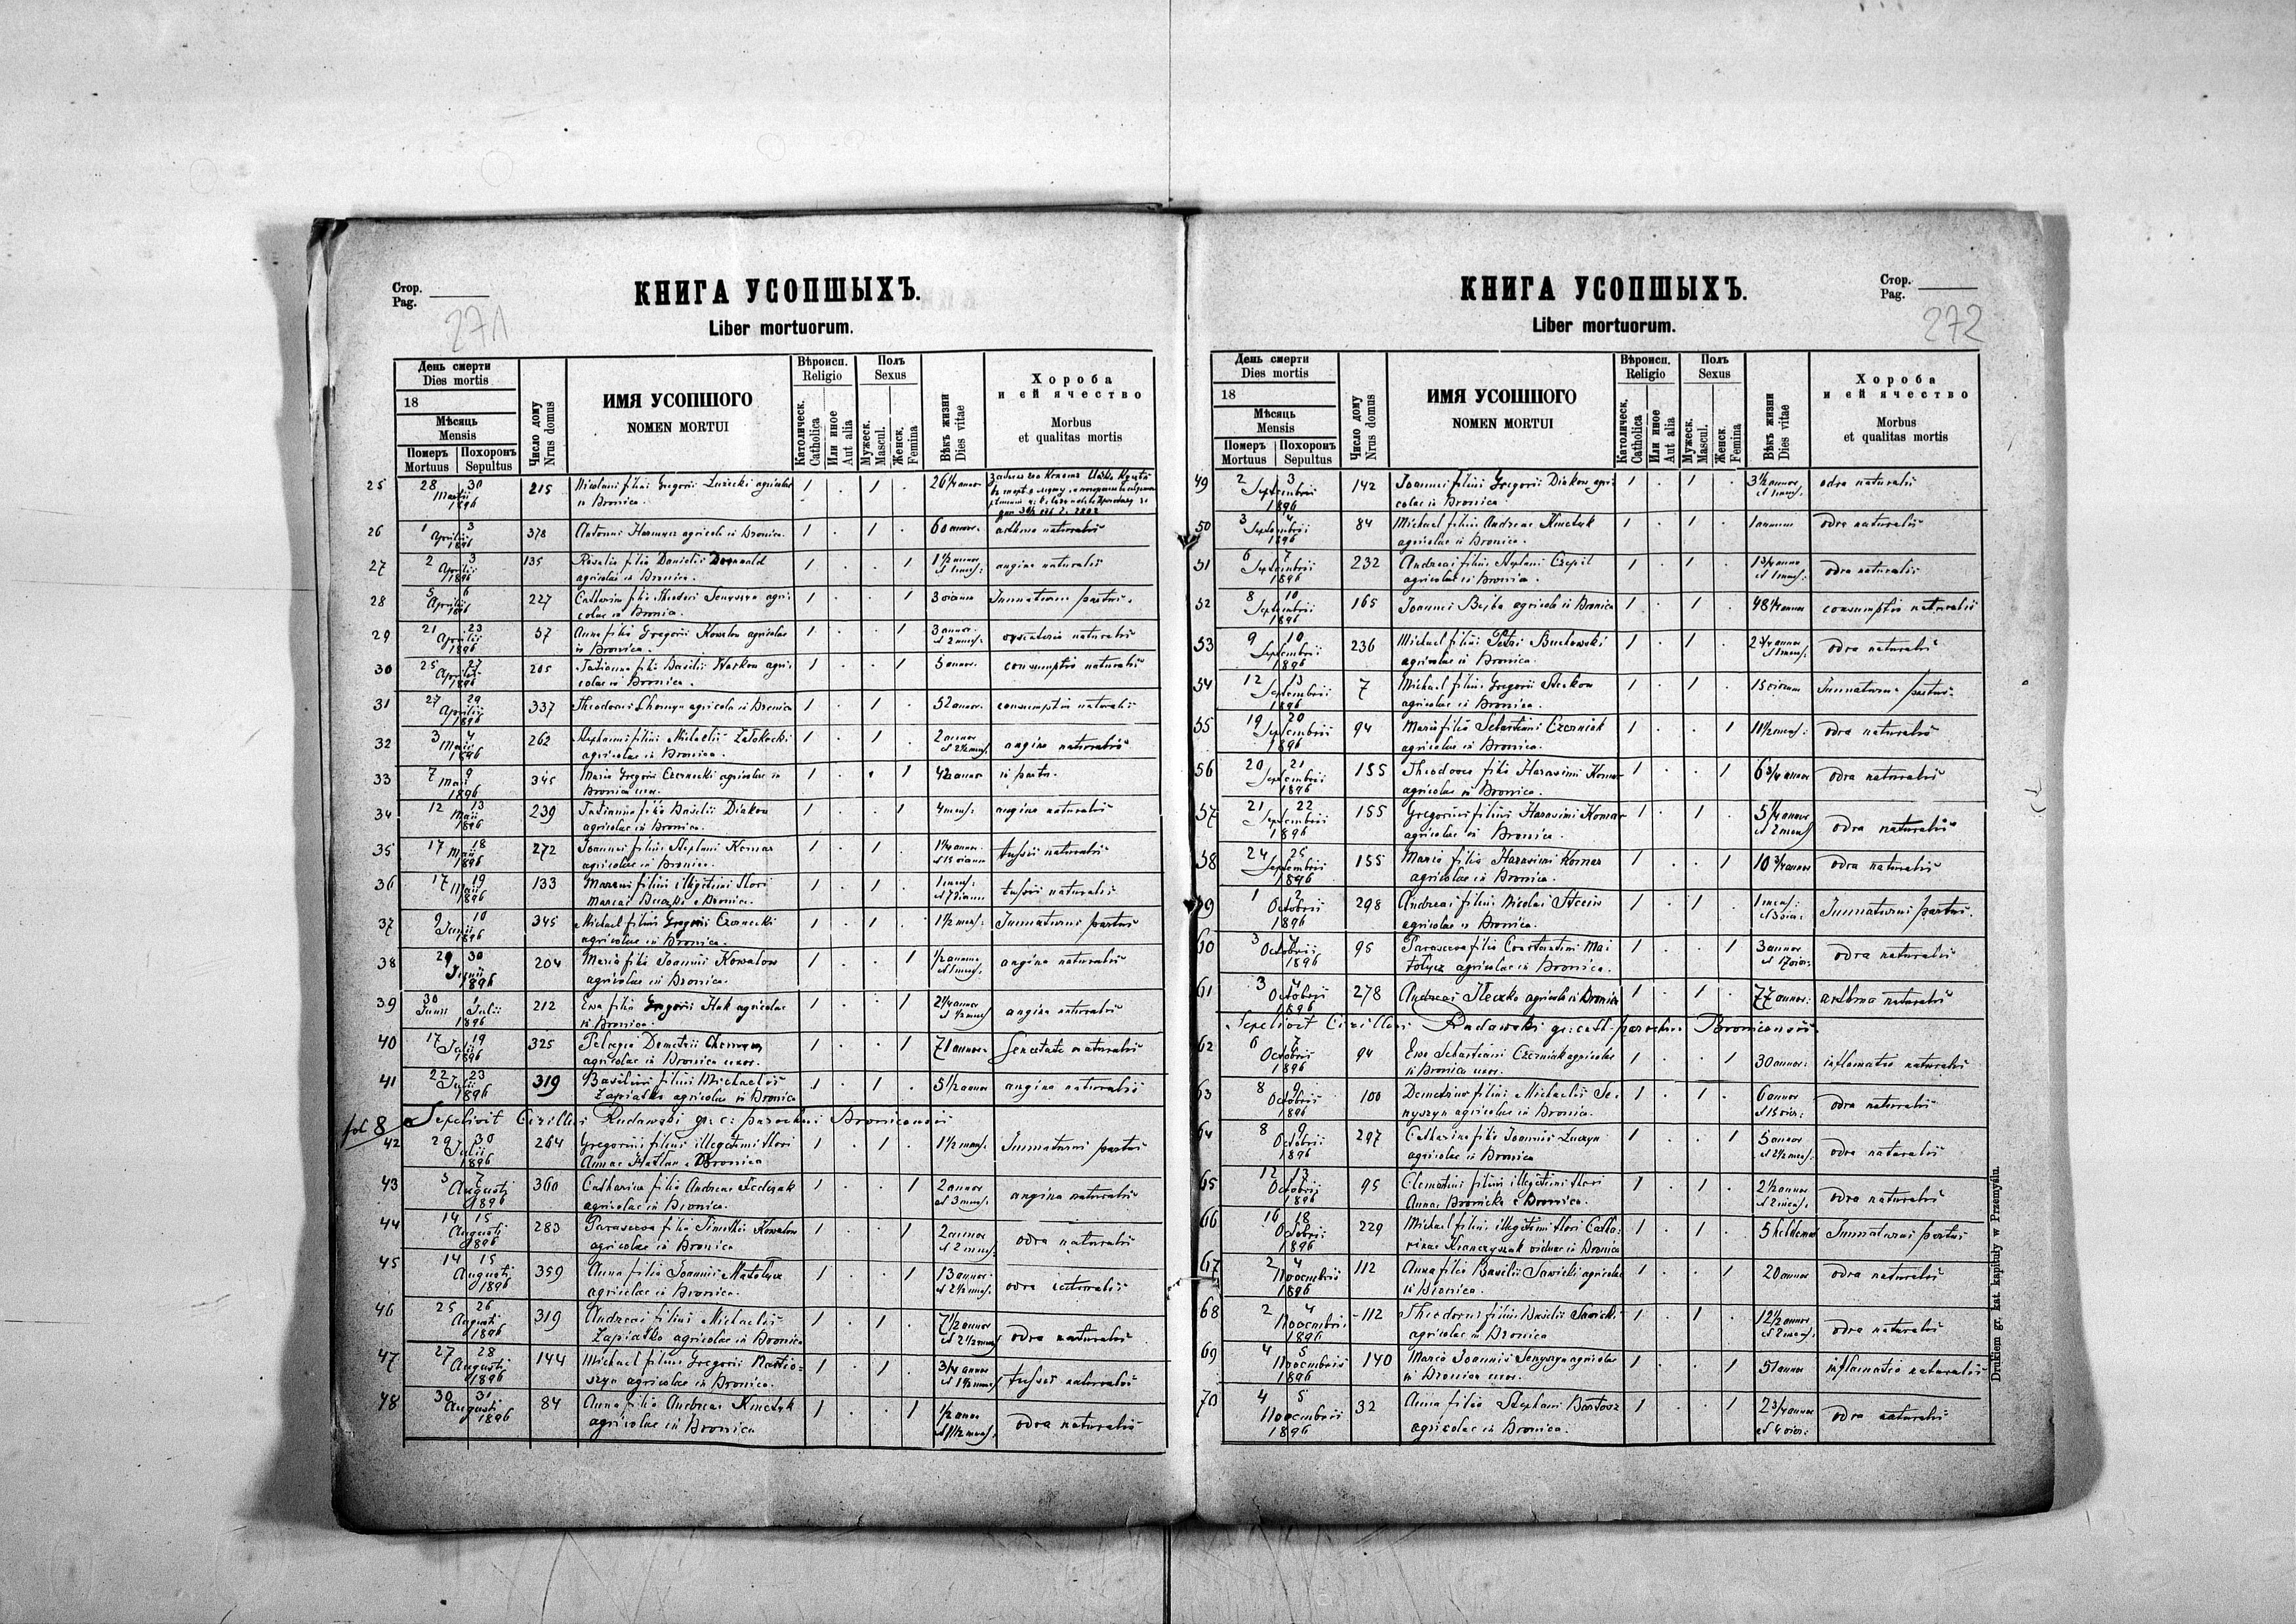 Стор.
Pag.
271
КНИГА УСОПШЫХЪ.
Liber mortuorum.
День смерти
Dies mortis
18
Мѣсяць
Mensis
Померъ
Mortuus
Похоронъ
Sepultus
Число дому
Nrus domus
ИМЯ УСОПШОГО
NOMEN MORTUI
Вѣроисп.
Religio
Католическ.
Catholica
Или иное
Aut alia
Полъ
Sexus
Мужеск.
Mascul.
Женск.
Femina
Вѣкъ жизни
Dies vitae
Хороба
и ей ячество
Morbus
et qualitas mortis
25 28 30 Martii 1896 215 filius Gregorii agricolae in Bronica 1 . 1 . 26 1/4 annor
26 1 3 Aprilis 1896 378 Antonius agricola in Bronica. 1 . 1 . 60 annor. asthma naturalis
27 2 3 Aprilis 1896 135 Rosalia filia Danielis
agricolae in Bronica. 1 . . 1 1 1/2 annor et 1 mens: angina naturalis
28 5 6 Aprilis 1896 227 Catharina filia Theodori Senyszyn agri-
colae in Bronica. 1 . . 1 Immaturus partus.
29 21 23 Aprilis 1896 57 Anna filia Gregorii Kowalow agricolae
in Bronica. 1 . . 1 3 annor. et 2 mens: naturalis
30 25 27 Aprilis 1896 205 Tatianna filia Basilii agri-
colae in Bronica. 1 . . 1 5 annor. consumptio naturalis
31 27 29 Aprilis 1896 337 Theodorus agricola in Bronica 1 . 1 . 52 annor. consumptio naturalis
32 3 4 Maii 1896 262 Stephanus filius Michaelis Zatokocki
agricolae in Bronica. 1 . 1 . 2 annor et 2 1/2 mens. angina naturalis
33 7 9 Maii 1896 345 Maria Gregorii Czernecki agricolae in
Bronica uxor. 1 . . 1 42 annor in partu.
34 12 13 Maii 1896 239 Tatianna filia Basilii Diakow
agricolae in Bronica. 1 . . 1 4 mens. angina naturalis
35 17 18 Maii 1896 272 Joannes filius Stephani Komar
agricolae in Bronica. 1 . 1 . tussis naturalis
36 17 19 Maii 1896 133 filius illegitimi thori
in Bronica. 1 . 1 . 1 mens: tussis naturalis
37 9 10 Junii 1896 345 Michael filius Gregorii Czernecki
agricolae in Bronica. 1 . 1 . 1 1/2 mens. Immaturus partus
38 29 30 Junii 1896 204 Maria filia Joannis Kowalow
agricolae in Bronica. 1 . . 1 angina naturalis
39 30 Junii 1 Julii 1896 212 Ewa filia Gregorii agricolae
in Bronica. 1 . . 1 2 1/4 annor angina naturalis
40 17 19 Julii 1896 325 Pelagia Demetrii
agricolae in Bronica uxor. 1 . . 1 71 annor. Senectute naturalis
41 22 23 Julii 1896 319 Basilius filius Michaelis
Zapiatko agricolae in Bronica 1 . 1 . 5 1/2 annor angina naturalis
fol 8 Sepelivit Cirillus Rudawski gr: c: parochus Bronicensis
42 29 30 Julii 1896 264 Gregorius filius illegitimi thori
Annae in Bronica 1 . 1 . 1 1/2 mens. Immaturus partus
43 5 7 Augusti 1896 360 Catharina filia Andreae Fedczak
agricolae in Bronica. 1 . . 1 2 annor et 3 mens. angina naturalis
44 14 15 Augusti 1896 283 Parasceva filia Timothei Kowalow
agricolae in Bronica 1 . . 1 2 annor et 2 mens. odra naturalis
45 14 15 Augusti 1896 359 Anna filia Joannis Matolycz
agricolae in Bronica. 1 . . 1 13 annor. et 2 1/2 mens. odra naturalis
46 25 26 Augusti 1896 319 Andreas filius Michaelis
Zapiatko agricolae in Bronica 1 . 1 . 7 1/2 annor et 2 1/2 mens odra naturalis
47 27 28 Augusti 1896 144 Michael filius Gregorii
agricolae in Bronica. 1 . 1 . 3/4 annor et 1 1/2 mens tussis naturalis
48 30 31 Augusti 1896 84 Anna filia Andreae Kmetyk
agricolae in Bronica 1 . . 1 1/2 annor et 1 1/2 mens. odra naturalis
Стор.
Pag.
272
КНИГА УСОПШЫХЪ.
Liber mortuorum.
День смерти
Dies mortis
18
Мѣсяць
Mensis
Померъ
Mortuus
Похоронъ
Sepultus
Число дому
Nrus domus
ИМЯ УСОПШОГО
NOMEN MORTUI
Вѣроисп.
Religio
Католическ.
Catholica
Или иное
Aut alia
Полъ
Sexus
Мужеск.
Mascul.
Женск.
Femina
Вѣкъ жизни
Dies vitae
Хороба
и ей ячество
Morbus
et qualitas mortis
49 2 3 Septembris 1896 142 Joannes filius Gregorii Diakow agri-
colae in Bronica. 1 . 1 . 3 1/2 annor et 1 mens: odra naturalis
50 3 4 Septembris 1896 84 Michael filius Andreae Kmetyk
agricolae in Bronica. 1 . 1 . 1 annum odra naturalis
51 6 7 Septembris 1896 232 Andreas filius Stephani Czepil
agricolae in Bronica. 1 . 1 . 1 3/4 annor et 1 mens: odra naturalis
52 8 10 Septembris 1896 165 Joannes Bejba agricola in Bronica 1 . 1 . 48 1/4 annor consumptio naturalis
53 9 10 Septembris 1896 236 Michael filius Petri Buchowski
agricolae in Bronica. 1 . 1 . 2 3/4 annor et 1 mens: odra naturalis
54 12 13 Septembris 1896 7 Michael filius Gregorii
agricolae in Bronica. 1 . 1 . 15 dierum Immaturus partus
55 19 20 Septembris 1896 94 Maria filia Sebastiani Czerniak
agricolae in Bronica. 1 . . 1 11 1/2 mens: odra naturalis
56 20 21 Septembris 1896 155 Theodora filia Harasimi Komar
agricolae in Bronica. 1 . . 1 6 3/4 annor odra naturalis
57 21 22 Septembris 1896 155 Gregorius filius Harasimi Komar
agricolae in Bronica. 1 . 1 . 5 1/4 annor et 2 mens odra naturalis
58 24 25 Septembris 1896 155 Maria filia Harasimi Komar
agricolae in Bronica. 1 . . 1 10 3/4 annor odra naturalis
59 1 2 Octobris 1896 298 Andreas filius Nicolai Steciw
agricolae in Bronica. 1 . 1 . 1 mens: Immaturus partus.
60 3 4 Octobris 1896 95 Parasceva filia Constantini Ma-
tolycz agricolae in Bronica. 1 . . 1 3 annor et 17 dier: odra naturalis
61 3 4 Octobris 1896 278 Andreas Steczko agricola in Bronica 1 . 1 . 77 annor: asthma naturalis
Sepelivit Cirillus Rudawski gr: cath. parochus Bronicensis.
62 6 7 Octobris 1896 94 Ewa Sebastiani Czerniak agricolae
in Bronica uxor. 1 . . 1 30 annor: inflamatio naturalis
63 8 9 Octobris 1896 100 Demetrius filius Michaelis Se-
nyszyn agricolae in Bronica. 1 . 1 . 6 annor et 15 dier: odra naturalis
64 8 9 Octobris 1896 297 Catharina filia Joannis Luczyn
agricolae in Bronica 1 . . 1 5 annor et 2 1/2 mens. odra naturalis
65 12 13 Octobris 1896 95 Clemetius filius illegitimi thori
Annae Bronicka in Bronica. 1 . 1 . 2 1/2 annor et 2 mens. odra naturalis
66 16 18 Octobris 1896 229 Michael filius illegitimi thori Catha-
rinae viduae in Bronica 1 . 1 . 5 hebdomad Immaturus partus
67 2 4 Novembris 1896 112 Anna filia Basilii Sawicki agricolae
in Bronica. 1 . . 1 20 annor odra naturalis
68 2 4 Novembris 1896 112 Theodorus filius Basilii Sawicki
agricolae in Bronica 1 . 1 . 12 1/2 annor et 2 mens. odra naturalis
69 4 5 Novembris 1896 140 Maria Joannis Senyszyn agricolae
in Bronica uxor. 1 . . 1 51 annor inflamatio naturalis
70 4 5 Novembris 1896 32 Anna filia Stephani Bartosz
agricolae in Bronica. 1 . . 1 2 3/4 annor et 4 dier: odra naturalis
Drukiem gr. kat. kapituły w Przemyślu.